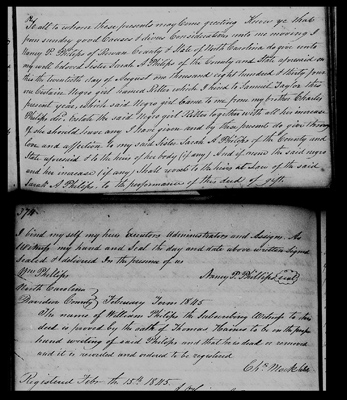 To all to whom these presents may come greeting Know ye that
from sundry good Causes & divers Considerations unto me moving I
Nancy P. Philips of Rowan County & State of North Carolina do give unto
my well beloved Sister Sarah A Philips of the County and State aforesaid on
this the twentieth day of August one thousand eight hundred & thirty four
one Certain Negro girl named Killes which I hired to Samuel Taylor this
present year, which said Negro girl Came to me from my brother Charles
Philips decd. to hold the said Negro girl Killes together with all her increase
if she should have any I have given and by these present do give through
love and affection to my said Sister Sarah A Philips of the County and
State aforesaid & to the heirs of her body (if any) And if none the said negro
and her increase (if any) shall revert to the heirs at law of the said
Sarah A Philips. to the performance of this deed of gift
374
I bind my self my heirs Executors Administrators and Assigns. As
Witness my hand and Seal the day and date above written Signed
Sealed & delivered In the presence of us
Wm Philips Nancy P. Philips seal
North Carolina
Davidson County February Term 1845
The name of William Philips the Subscribing Witness to this
deed is proved by the oath of Thomas Haines to be in the proper
hand writing of said Philips and that he is dead or removed
and it is recorded and ordered to be registered
Chs. Mock Clk
Registered Feby. the 15th 1845.